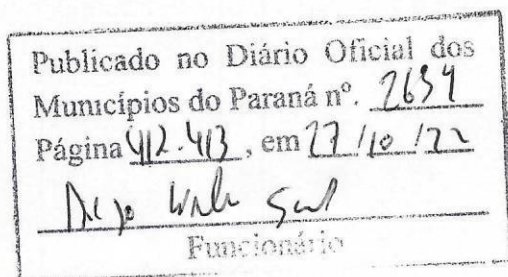 Publicado no Diário Oficial dos
Municípios do Paraná nº. 2634
Página 412-413, em 27/10/22
Funcionário